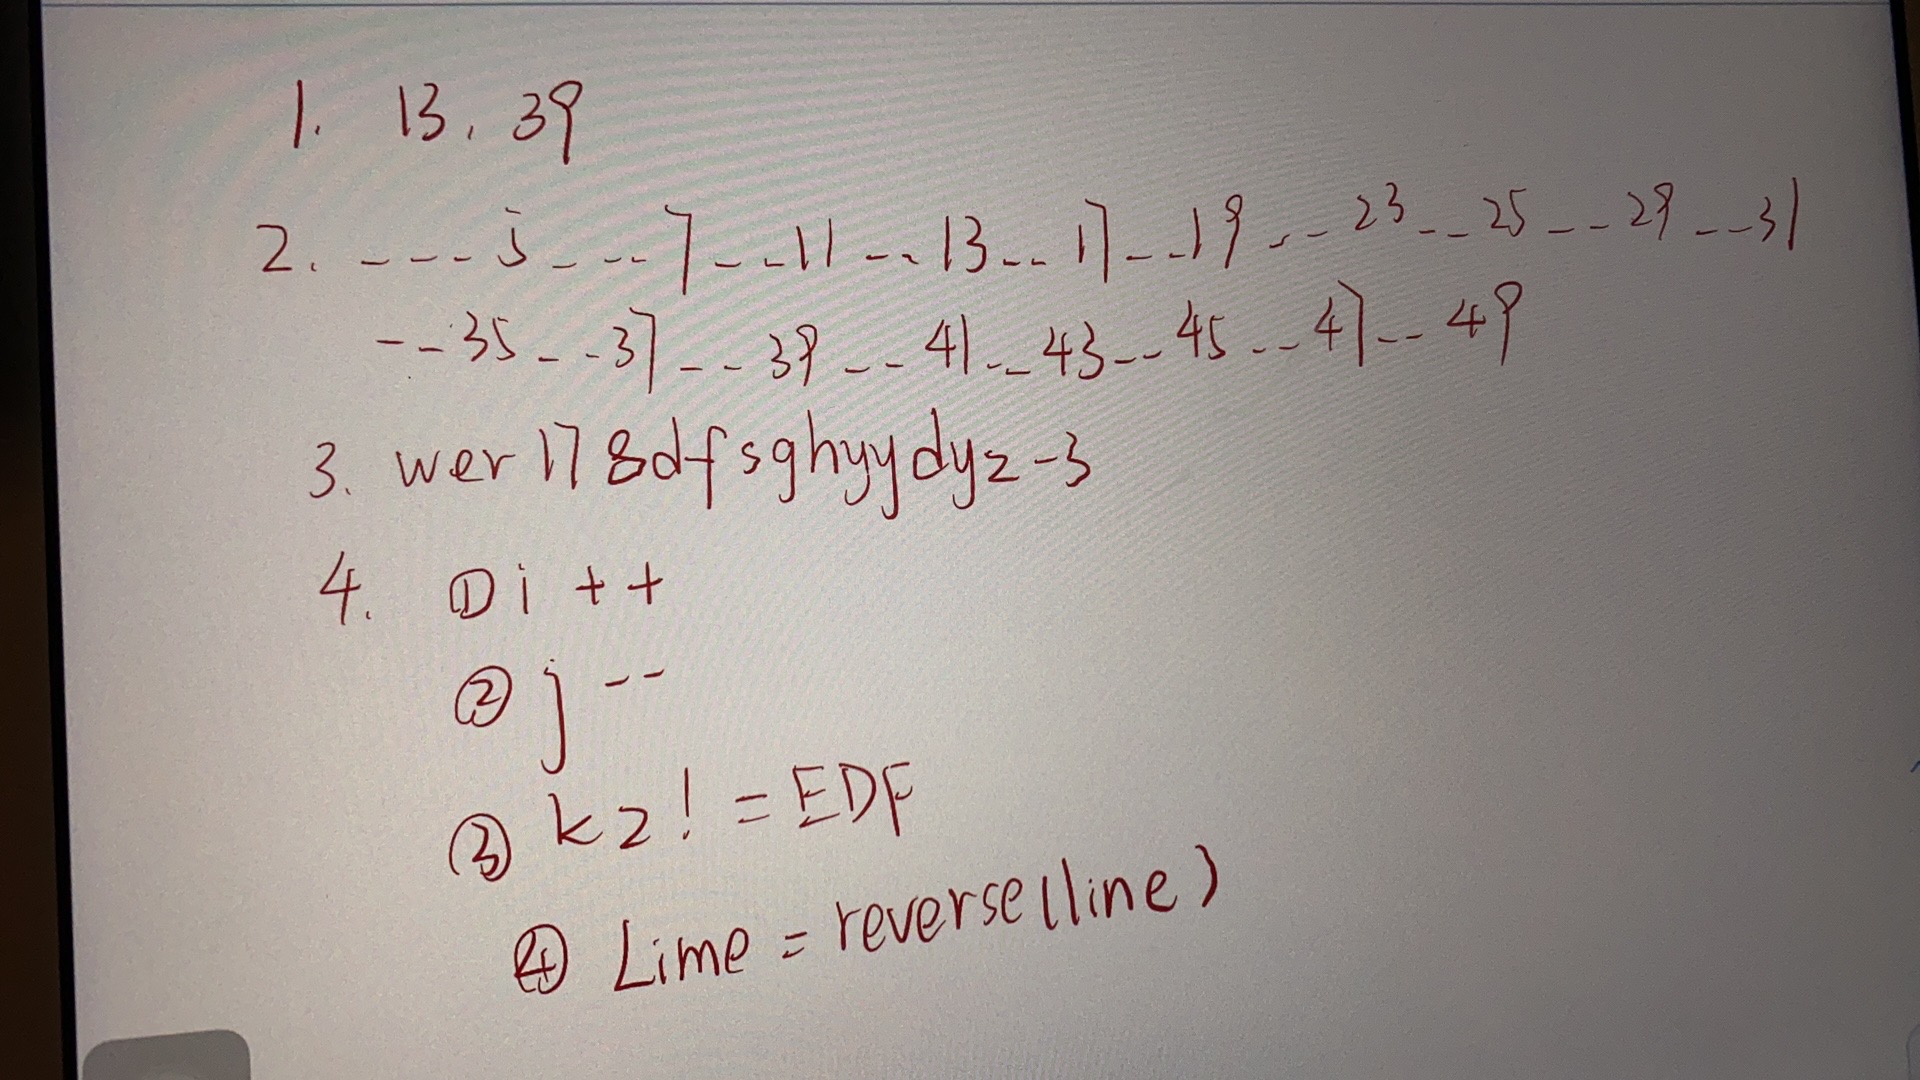 1. 13, 39
2. - - - - 5 - - - - 7 - - 11 - - 13 - - 17 - - 19 - - 23 - - 25 - - 29 - - 31
- - 35 - - 37 - - 39 - - 41 - - 43 - - 45 - - 47 - - 49
3. wer178dfsghyydyz-3
4. ① i++
② j--
③ kz! = EDF
④ Lime = reverse(line)